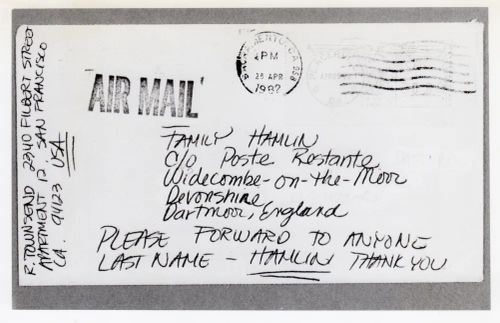 R. TOWNSEND 2340 FILBERT STREET
APARTMENT 12. SAN FRANCISCO
CA. 94123 USA
AIR MAIL
SACRAMENTO, CA 958
PM
28 APR
1982
FAMILY HAMLIN
C/O Poste Restante
Widecombe-on-the-Moor
Devonshire
Dartmoor, England
PLEASE FORWARD TO ANYONE
LAST NAME - HAMLIN THANK YOU